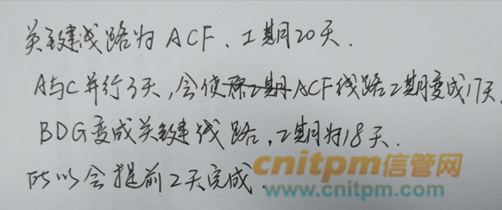 关键线路为ACF、工期20天.
A与C并行3天,会使原工期ACF线路工期变成17天.
BDG变成关键线路,工期为18天.
所以会提前2天完成.
cnitpm信管网
www.cnitpm.com